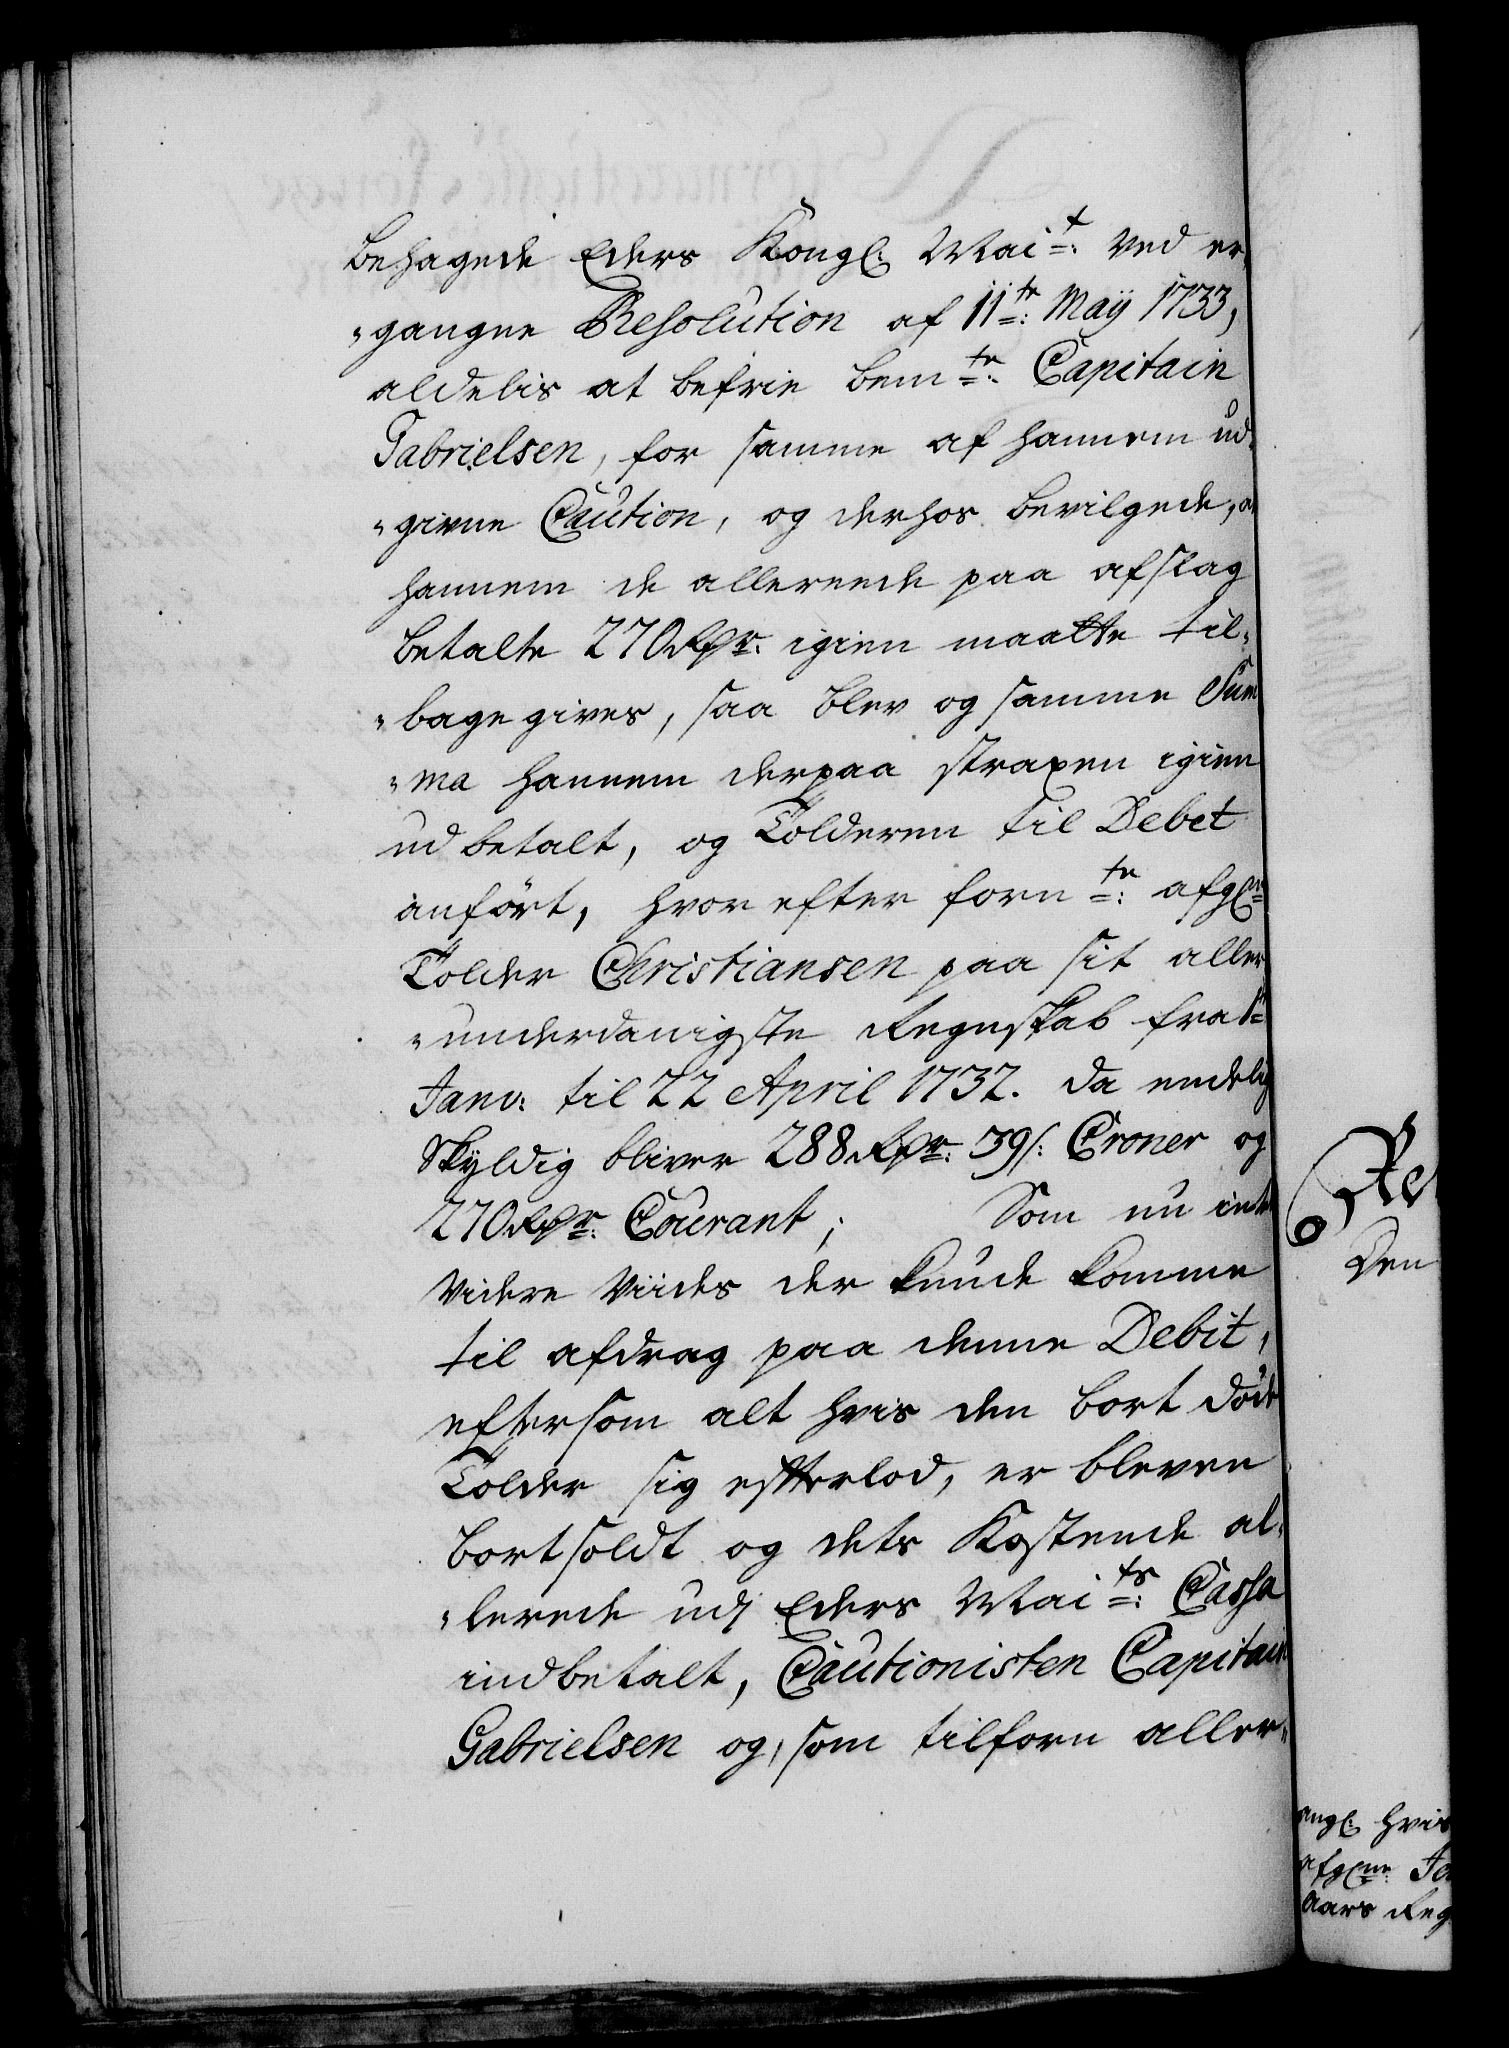 behagede Eders Kongl: Mai=t: ved er-
"gangne Resolution af 11=te: Maÿ 1733,
aldelis at befrie bem=te: Capitain
Gabrielsen, for samme af hannem ud-
"givne Caution, og derhos bevilgede, a
hannem de allereede paa afslag
betalte 270 Rdr. igien maatte til-
"bage gives, saa blev og samme Sum
"ma hannem derpaa straxen igien
udbetalt, og Tolderen til Debet
anført, hvor efter forn=te: afgl=ne
Tolder Christiansen paa sit aller
"underdanigste Regnskab fra 1=te
Janv: til 22 April 1732. da endelig
Skyldig bliver 288 Rdr: 39 s: Croner og
270 Rdr: Courant; Som nu intet
videre viides der kunde komme
til afdrag paa denne Debit,
eftersom alt hvis den bort døde
Tolder sig efterlod, er bleven
bortsoldt og dets Kostende al-
"lerede udj Eders Mai=ts: Cassa
indbetalt, Cautionisten Capitain
Gabrielsen og, som tilforn aller-
Den
angl: hvis
afgl=ne:
Aars Reg